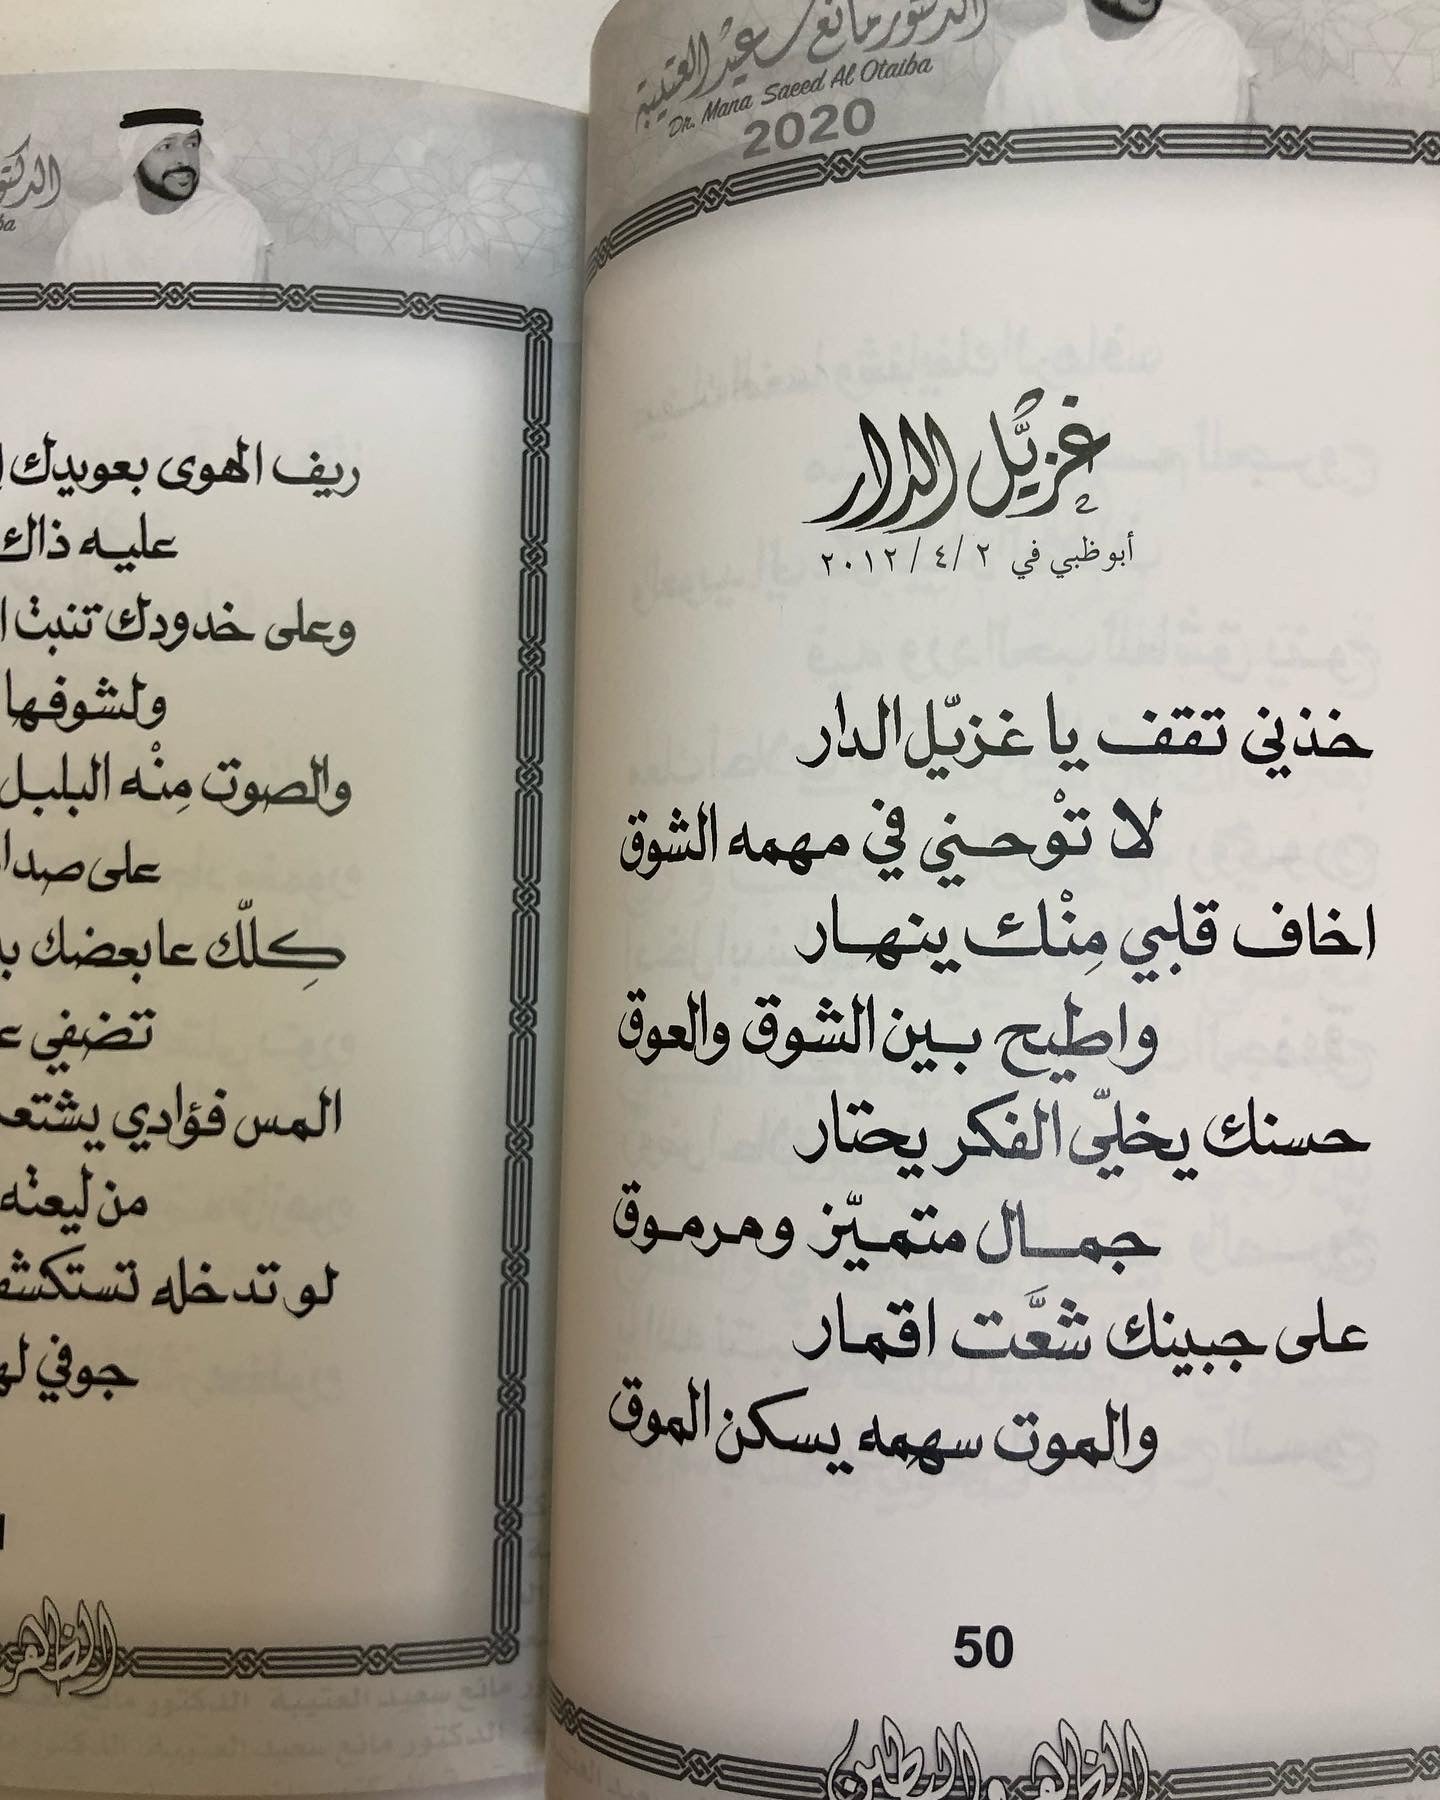 الدكتور مانع سعيد العتيبة
Dr. Mana Saeed Al Otaiba
2020
غزيّل الدار
أبوظبي في ٢ /٤ /٢٠١٢
خذني تقف يا غزيّل الدار
لا توْحني في مهمه الشوق
اخاف قلبي مِنْك ينهار
واطيح بين الشوق والعوق
حسنك يخليّ الفكر يحتار
جمال متميّز ومرموق
على جبينك شعَّت اقمار
والموت سهمه يسكن الموق
50
ريف الهوى بعويدك
عليه ذاك
وعلى خدودك تنبت
ولشوفها
والصوت مِنْه البلبل
على
كِلّك عابعضك
تضفي
المس فؤادي
من ليعته
لو تدخله
جوفي